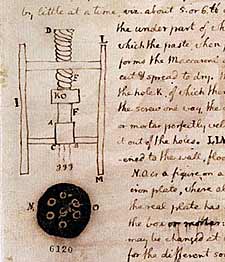 by little at a time viz. about 5. or 6.
the under part of
which the paste, when
forms the Maccaroni
cut & spread to dry.
the hole K. of which the
the screw one way, the
or mortar perfectly
it out of the holes.
ened to the wall,
N.O. is a figure on a
iron plate, where
the real plate has
the box or mortar
may be changed at
for the different so
D
L
E
I
KO
F
A
C
M
N
O
6120